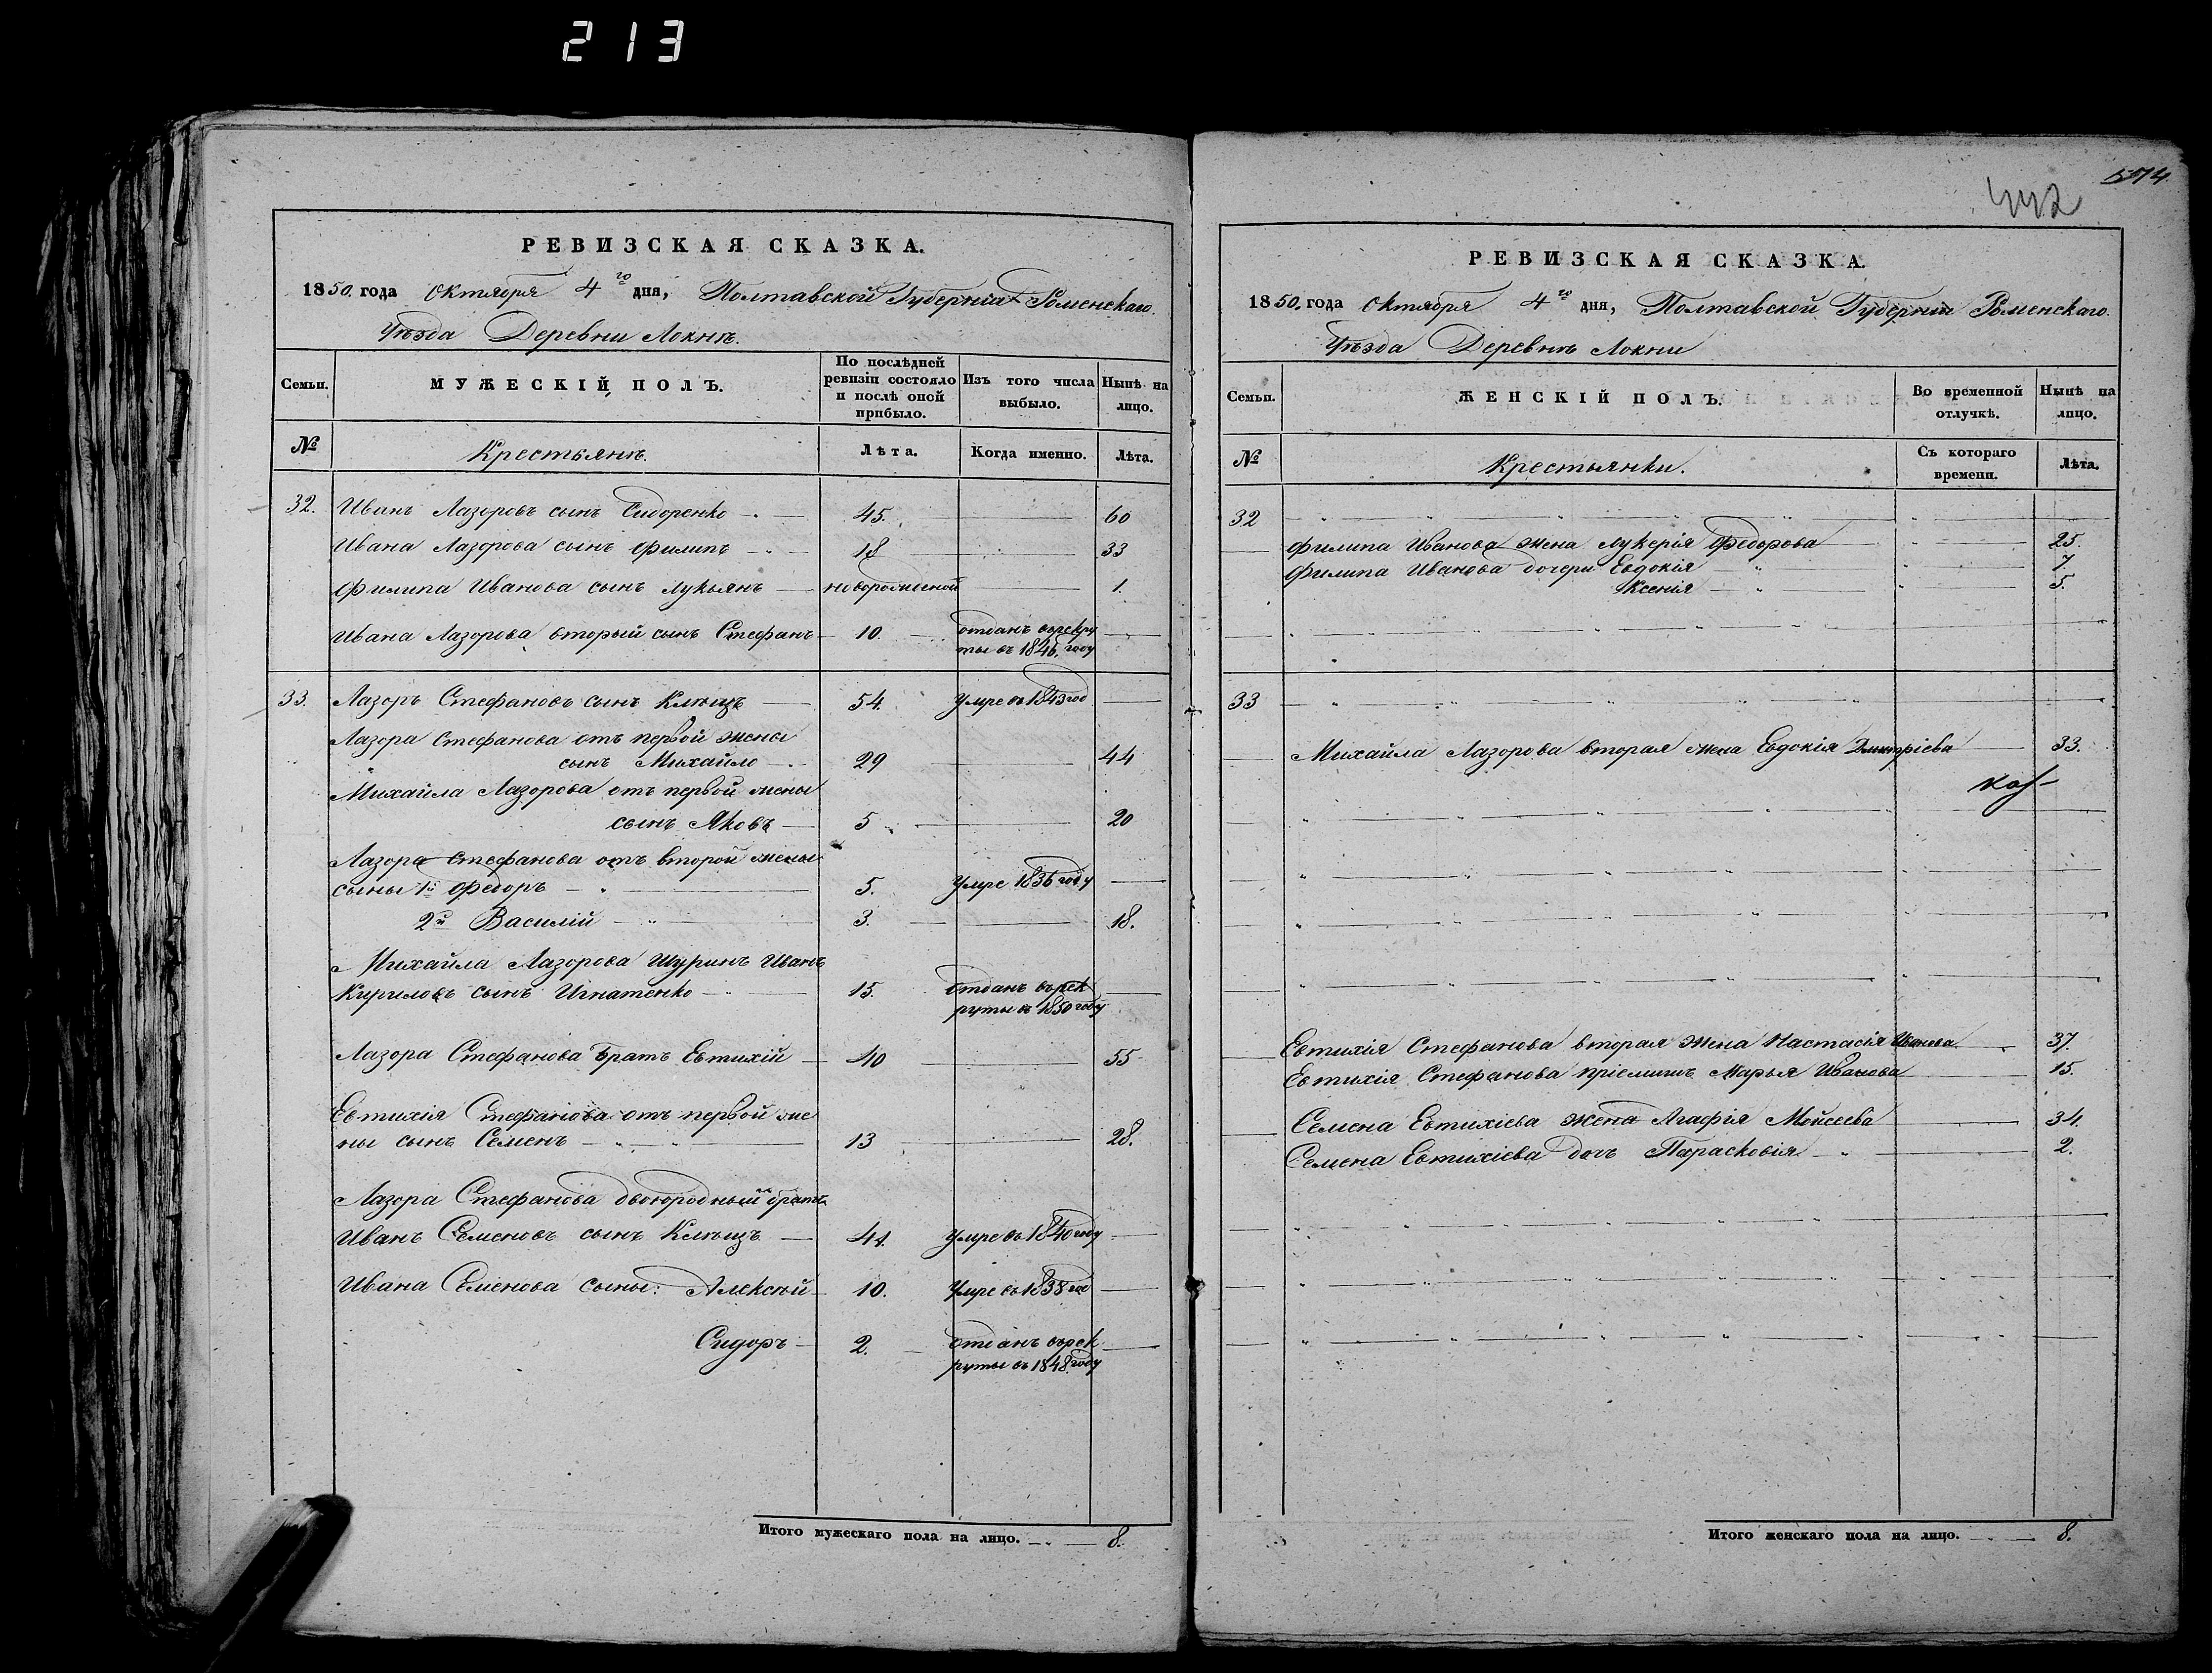 213
РЕВИЗСКАЯ СКАЗКА.
1850. года Октября 4го дня, Полтавской Губернiи Роменскаго.
Уѣзда Деревни Локнѣ.
Семьи.
МУЖЕСКIЙ ПОЛЪ.
По послѣдней ревизiи состояло и послѣ оной прибыло.
Изъ того числа выбыло.
Нынѣ на лицо.
№
Крестьянѣ.
Лѣта.
Когда именно.
Лѣта.
32. Иванъ Лазоровъ сынъ Сидоренко 45. 60
Ивана Лазорова сынъ Филипъ 18 33
Филипа Иванова сынъ Лукьянъ новорожденой 1.
Ивана Лазорова вторый сынъ Стефанъ 10. отданъ върекру
ты въ 1846. году
33. Лазоръ Стефановъ сынъ Клѣщъ 54. Умре въ 1843 год
Лазора Стефанова отъ первой жены
сынъ Михайло 29 44
Михайла Лазорова отъ первой жены
сынъ Яковъ 5 20
Лазора Стефанова отъ второй жены
сыны 1й Федоръ 5. Умре 1836 году
2й Василiй 3. 18.
Михайла Лазорова Шуринъ Иванъ
Кириловъ сынъ Игнатенко 15. отданъ върек
руты въ 1850 году
Лазора Стефанова Братъ Евтихiй 40 55
Евтихiя Стефанова отъ первой же
ны сынъ Семенъ 13 28.
Лазора Стефанова двоюродный братъ
Иванъ Семеновъ сынъ Клѣщъ 41. Умре въ 1840 году
Ивана Семенова сыны: Алексѣй 10. Умре въ 1838 год
Сидоръ 2. отданъ върек
руты въ 1848. году
Итого мужескаго пола на лицо. 8.
574
442
РЕВИЗСКАЯ СКАЗКА.
1850. года Октября 4го дня, Полтавской Губернiи Роменскаго.
Уѣзда Деревнѣ Локни
Семьи.
ЖЕНСКIЙ ПОЛЪ.
Во временной отлучкѣ.
Нынѣ на лицо.
№
Крестьянки.
Съ котораго времени.
Лѣта.
32
Филипа Иванова жена Лукерiя Федорова 25.
Филипа Иванова дочери Евдокiя 7.
Ксенiя 5.
33
Михайла Лазорова вторая жена Евдокiя Дмитрiева 33.
Евтихiя Стефанова вторая жена Настасiя Иванова 37.
Евтихiя Стефанова прiемишъ Марья Иванова 15.
Семена Евтихiева жена Агафiя Мойсеева 34.
Семена Евтихiева дочь Парасковiя 2.
Итого женскаго пола на лицо. 8.